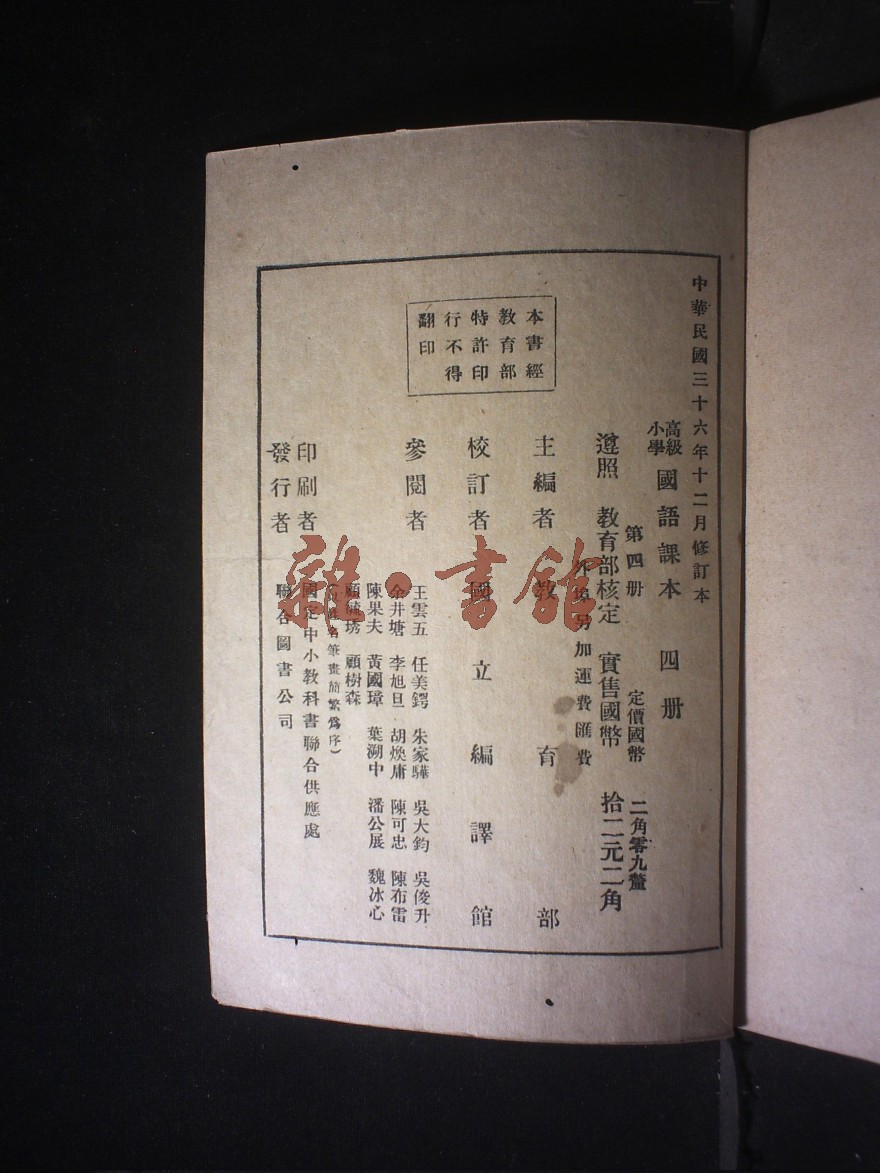 中華民國三十六年十二月修訂本
高級
小學
國語課本 四册
第四册 定價國幣 二角零九釐
遵照 教育部核定 實售國幣 拾二元二角
外埠另加運費匯費
本書經
教育部
特許印
行不得
翻印
主編者 教育部
校訂者 國立編譯館
參閱者
王雲五 任美鍔 朱家驊 吳大鈞 吳俊升
余井塘 李旭旦 胡煥庸 陳可忠 陳布雷
陳果夫 黃國璋 葉溯中 潘公展 魏冰心
顧毓琇 顧樹森
(以姓名筆畫簡繁爲序)
印刷者 國定中小教科書聯合供應處
發行者 聯合圖書公司
雜·書館